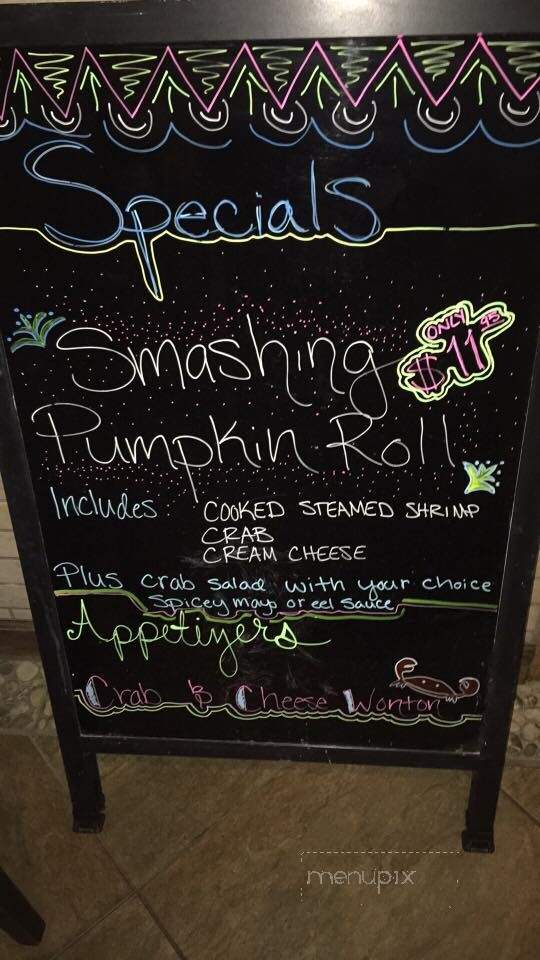 Specials
Smashing
ONLY
$11.95
Pumpkin Roll
Includes: COOKED STEAMED SHRIMP
CRAB
CREAM CHEESE
Plus crab salad with your choice
Spicey mayo or eel sauce
Appetiyers
Crab & Cheese Wonton
menupix